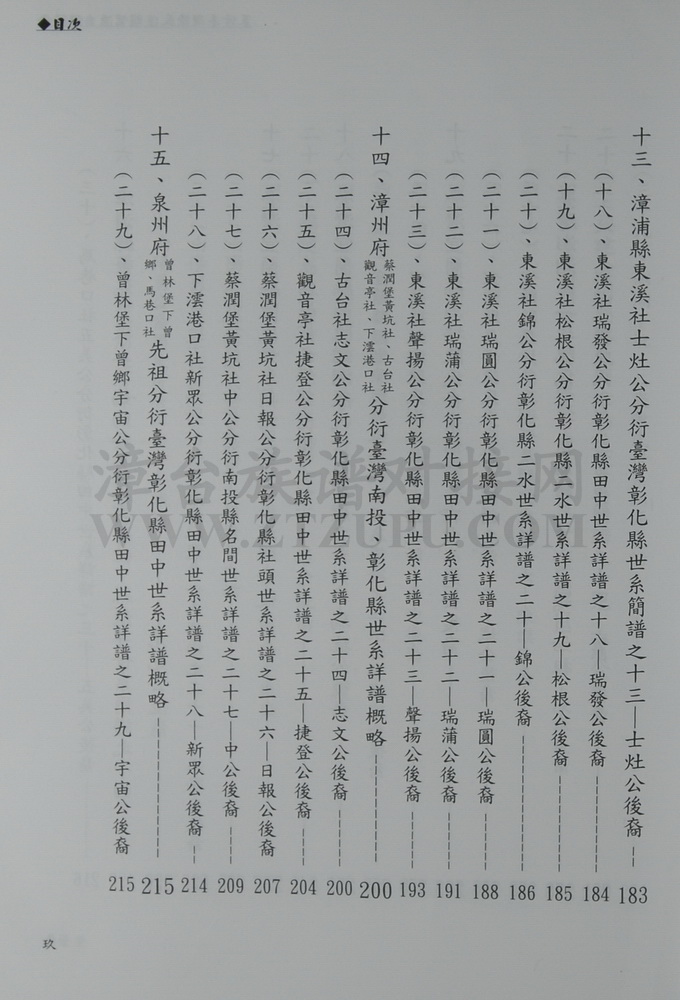 ◆目次
十三、漳浦縣東溪社士灶公分衍臺灣彰化縣世系簡譜之十三—士灶公後裔 183
（十八）、東溪社瑞發公分衍彰化縣田中世系詳譜之十八—瑞發公後裔 184
（十九）、東溪社松根公分衍彰化縣二水世系詳譜之十九—松根公後裔 185
（二十）、東溪社錦公分衍彰化縣二水世系詳譜之二十—錦公後裔 186
（二十一）、東溪社瑞圓公分衍彰化縣田中世系詳譜之二十一—瑞圓公後裔 188
（二十二）、東溪社瑞蒲公分衍彰化縣田中世系詳譜之二十二—瑞蒲公後裔 191
（二十三）、東溪社聲揚公分衍彰化縣田中世系詳譜之二十三—聲揚公後裔 193
十四、漳州府蔡潤堡黃坑社、古台社觀音亭社、下澐港口社分衍臺灣南投、彰化縣世系詳譜概略 200
（二十四）、古台社志文公分衍彰化縣田中世系詳譜之二十四—志文公後裔 200
（二十五）、觀音亭社捷登公分衍彰化縣田中世系詳譜之二十五—捷登公後裔 204
（二十六）、蔡潤堡黃坑社日報公分衍彰化縣社頭世系詳譜之二十六—日報公後裔 207
（二十七）、蔡潤堡黃坑社中公分衍南投縣名間世系詳譜之二十七—中公後裔 209
（二十八）、下澐港口社新眾公分衍彰化縣田中世系詳譜之二十八—新眾公後裔 214
十五、泉州府曾林堡下曾鄉、馬巷口社先祖分衍臺灣彰化縣田中世系詳譜概略 215
（二十九）、曾林堡下曾鄉宇宙公分衍彰化縣田中世系詳譜之二十九—宇宙公後裔 215
玖
漳台族谱对接网
WWW.ZTZUPU.COM